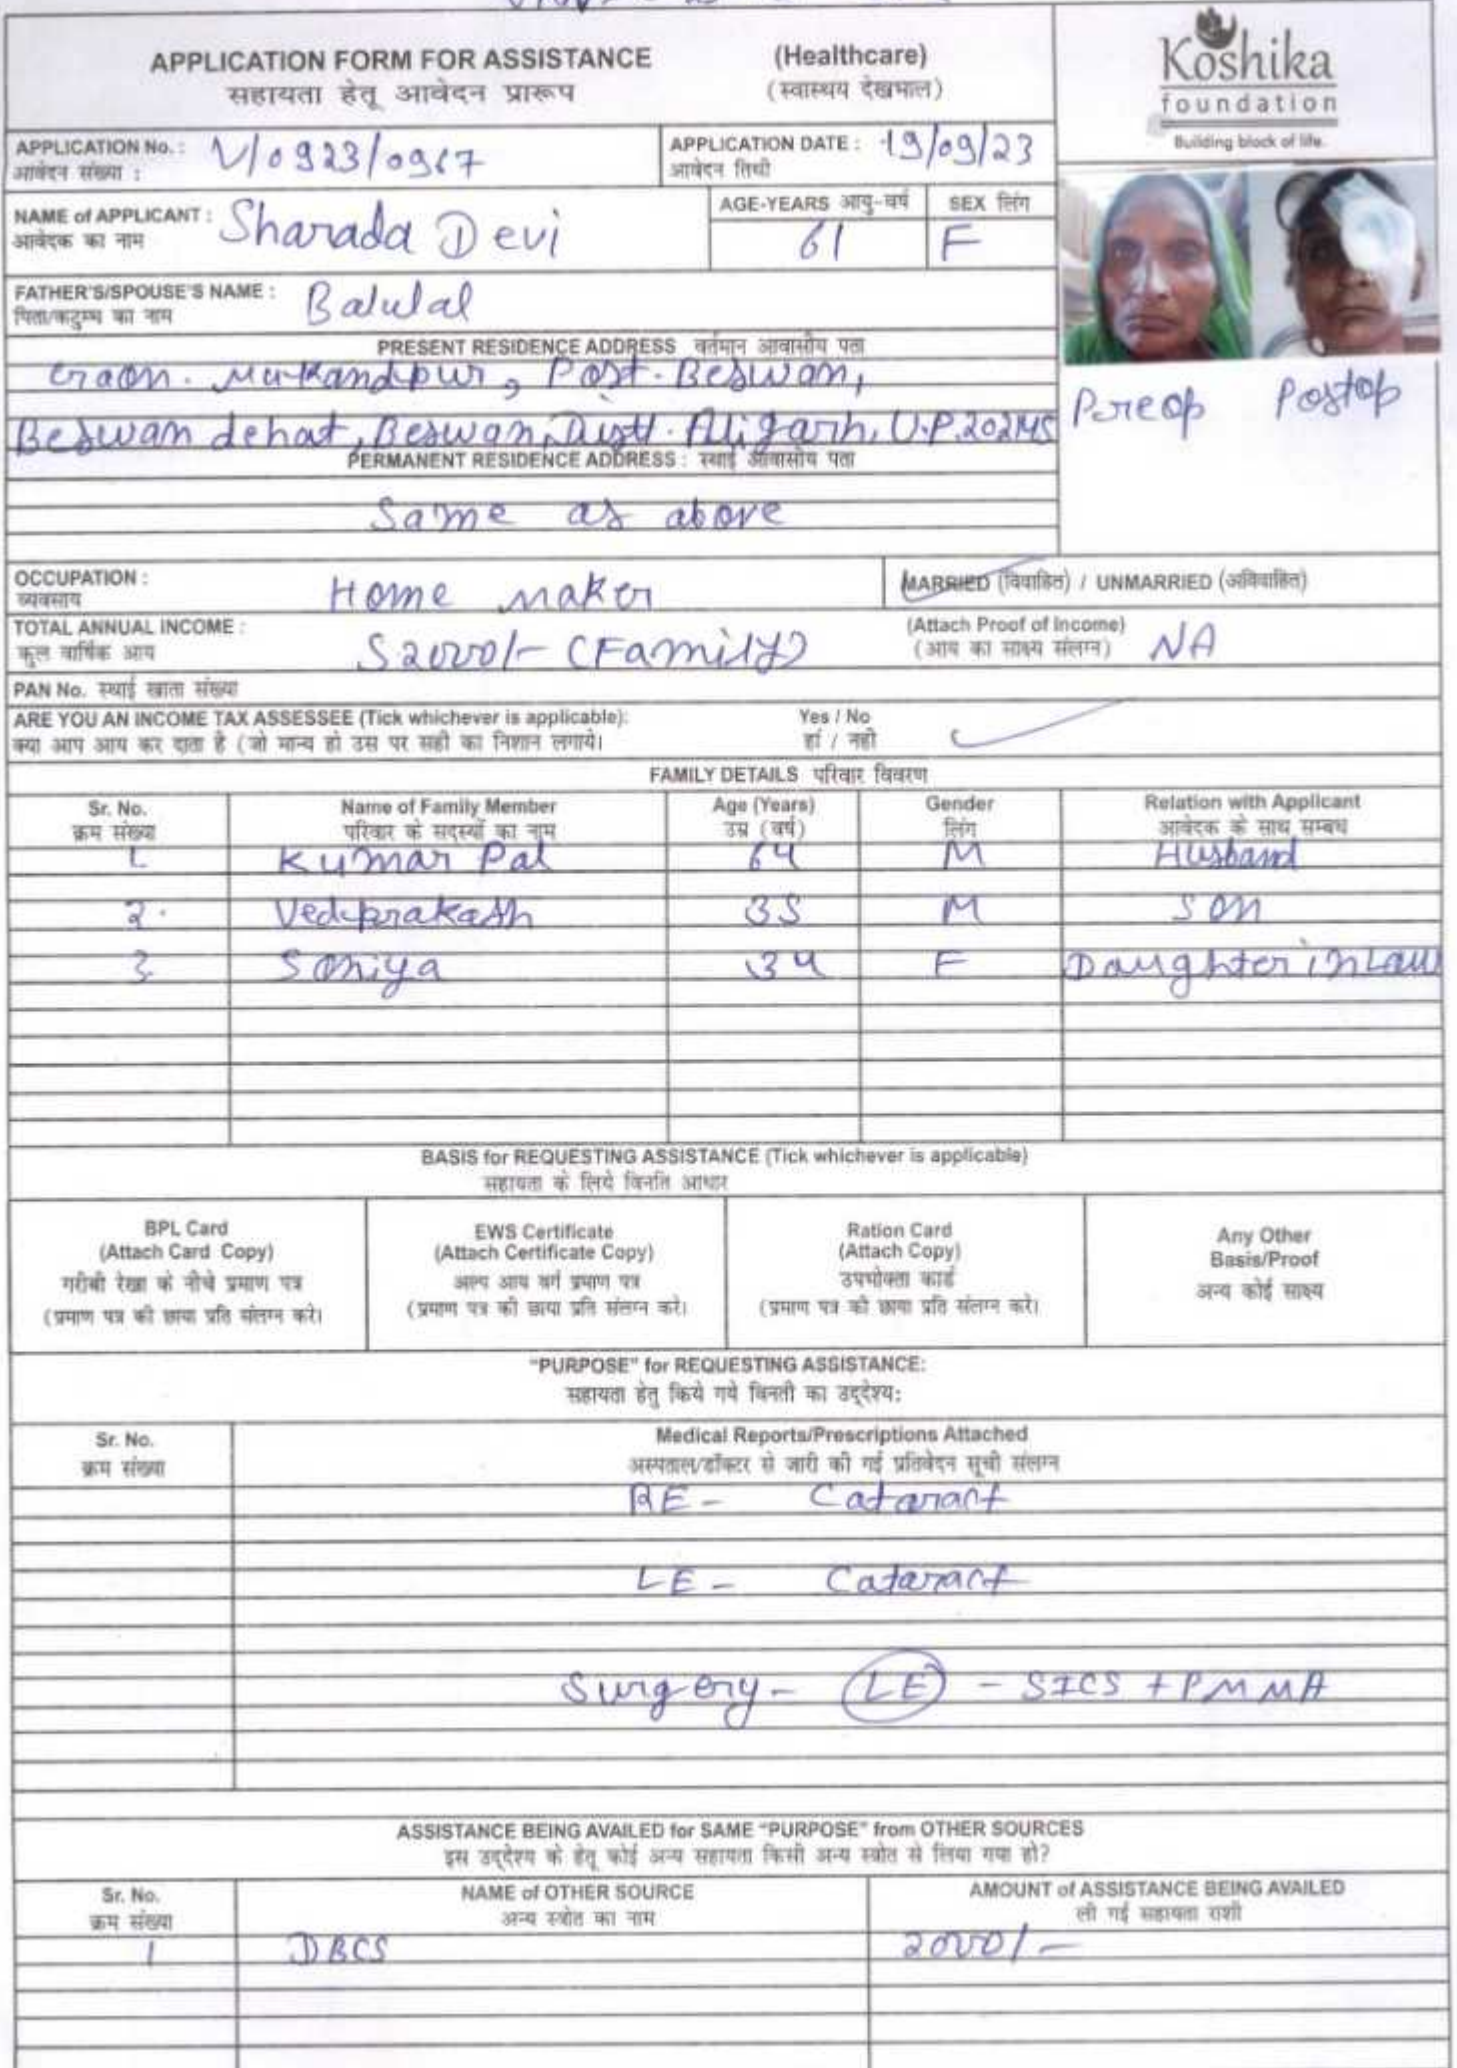 APPLICATION FORM FOR ASSISTANCE (Healthcare)
सहायता हेतू आवेदन प्रारूप (स्वास्थय देखभाल)
Koshika
foundation
Building block of life.
APPLICATION No. : V/0923/0967
आवेदन संख्या :
APPLICATION DATE : 19/09/23
आवेदन तिथी
NAME of APPLICANT : Sharada Devi
आवेदक का नाम
AGE-YEARS आयु-वर्ष SEX लिंग
61 F
FATHER'S/SPOUSE'S NAME : Balulal
पिता/कटुम्ब का नाम
PRESENT RESIDENCE ADDRESS वर्तमान आवासीय पता
Graon. Mukandpur, Post. Beswan,
Beswan dehat, Beswan, Distt. Aligarh, U.P. 202145
Preop Postop
PERMANENT RESIDENCE ADDRESS : स्थाई आवासीय पता
Same as above
OCCUPATION : Home maker
व्यवसाय
MARRIED (विवाहित) / UNMARRIED (अविवाहित)
TOTAL ANNUAL INCOME : 52000/- (Family)
कुल वार्षिक आय
(Attach Proof of Income) NA
(आय का साक्ष्य संलग्न)
PAN No. स्थाई खाता संख्या
ARE YOU AN INCOME TAX ASSESSEE (Tick whichever is applicable): Yes / No
क्या आप आय कर दाता है (जो मान्य हो उस पर सही का निशान लगाये। हां / नही
FAMILY DETAILS परिवार विवरण
Sr. No. Name of Family Member Age (Years) Gender Relation with Applicant
क्रम संख्या परिवार के सदस्यों का नाम उम्र (वर्ष) लिंग आवेदक के साथ सम्बध
1 Kumar Pal 64 M Husband
2. Vedprakash 35 M Son
3 Soniya 34 F Daughter in Law
BASIS for REQUESTING ASSISTANCE (Tick whichever is applicable)
सहायता के लिये विनति आधार
BPL Card
(Attach Card Copy)
गरीबी रेखा के नीचे प्रमाण पत्र
(प्रमाण पत्र की छाया प्रति संलग्न करे।
EWS Certificate
(Attach Certificate Copy)
अल्प आय वर्ग प्रमाण पत्र
(प्रमाण पत्र की छाया प्रति संलग्न करे।
Ration Card
(Attach Copy)
उपभोक्ता कार्ड
(प्रमाण पत्र की छाया प्रति संलग्न करे।
Any Other
Basis/Proof
अन्य कोई साक्ष्य
"PURPOSE" for REQUESTING ASSISTANCE:
सहायता हेतु किये गये विनती का उद्देश्य:
Sr. No. Medical Reports/Prescriptions Attached
क्रम संख्या अस्पताल/डॉक्टर से जारी की गई प्रतिवेदन सूची संलग्न
RE - Cataract
LE - Cataract
Surgery - LE - SICS + PMMA
ASSISTANCE BEING AVAILED for SAME "PURPOSE" from OTHER SOURCES
इस उद्देश्य के हेतू कोई अन्य सहायता किसी अन्य स्त्रोत से लिया गया हो?
Sr. No. NAME of OTHER SOURCE AMOUNT of ASSISTANCE BEING AVAILED
क्रम संख्या अन्य स्त्रोत का नाम ली गई सहायता राशी
1 DBCS 2000/-